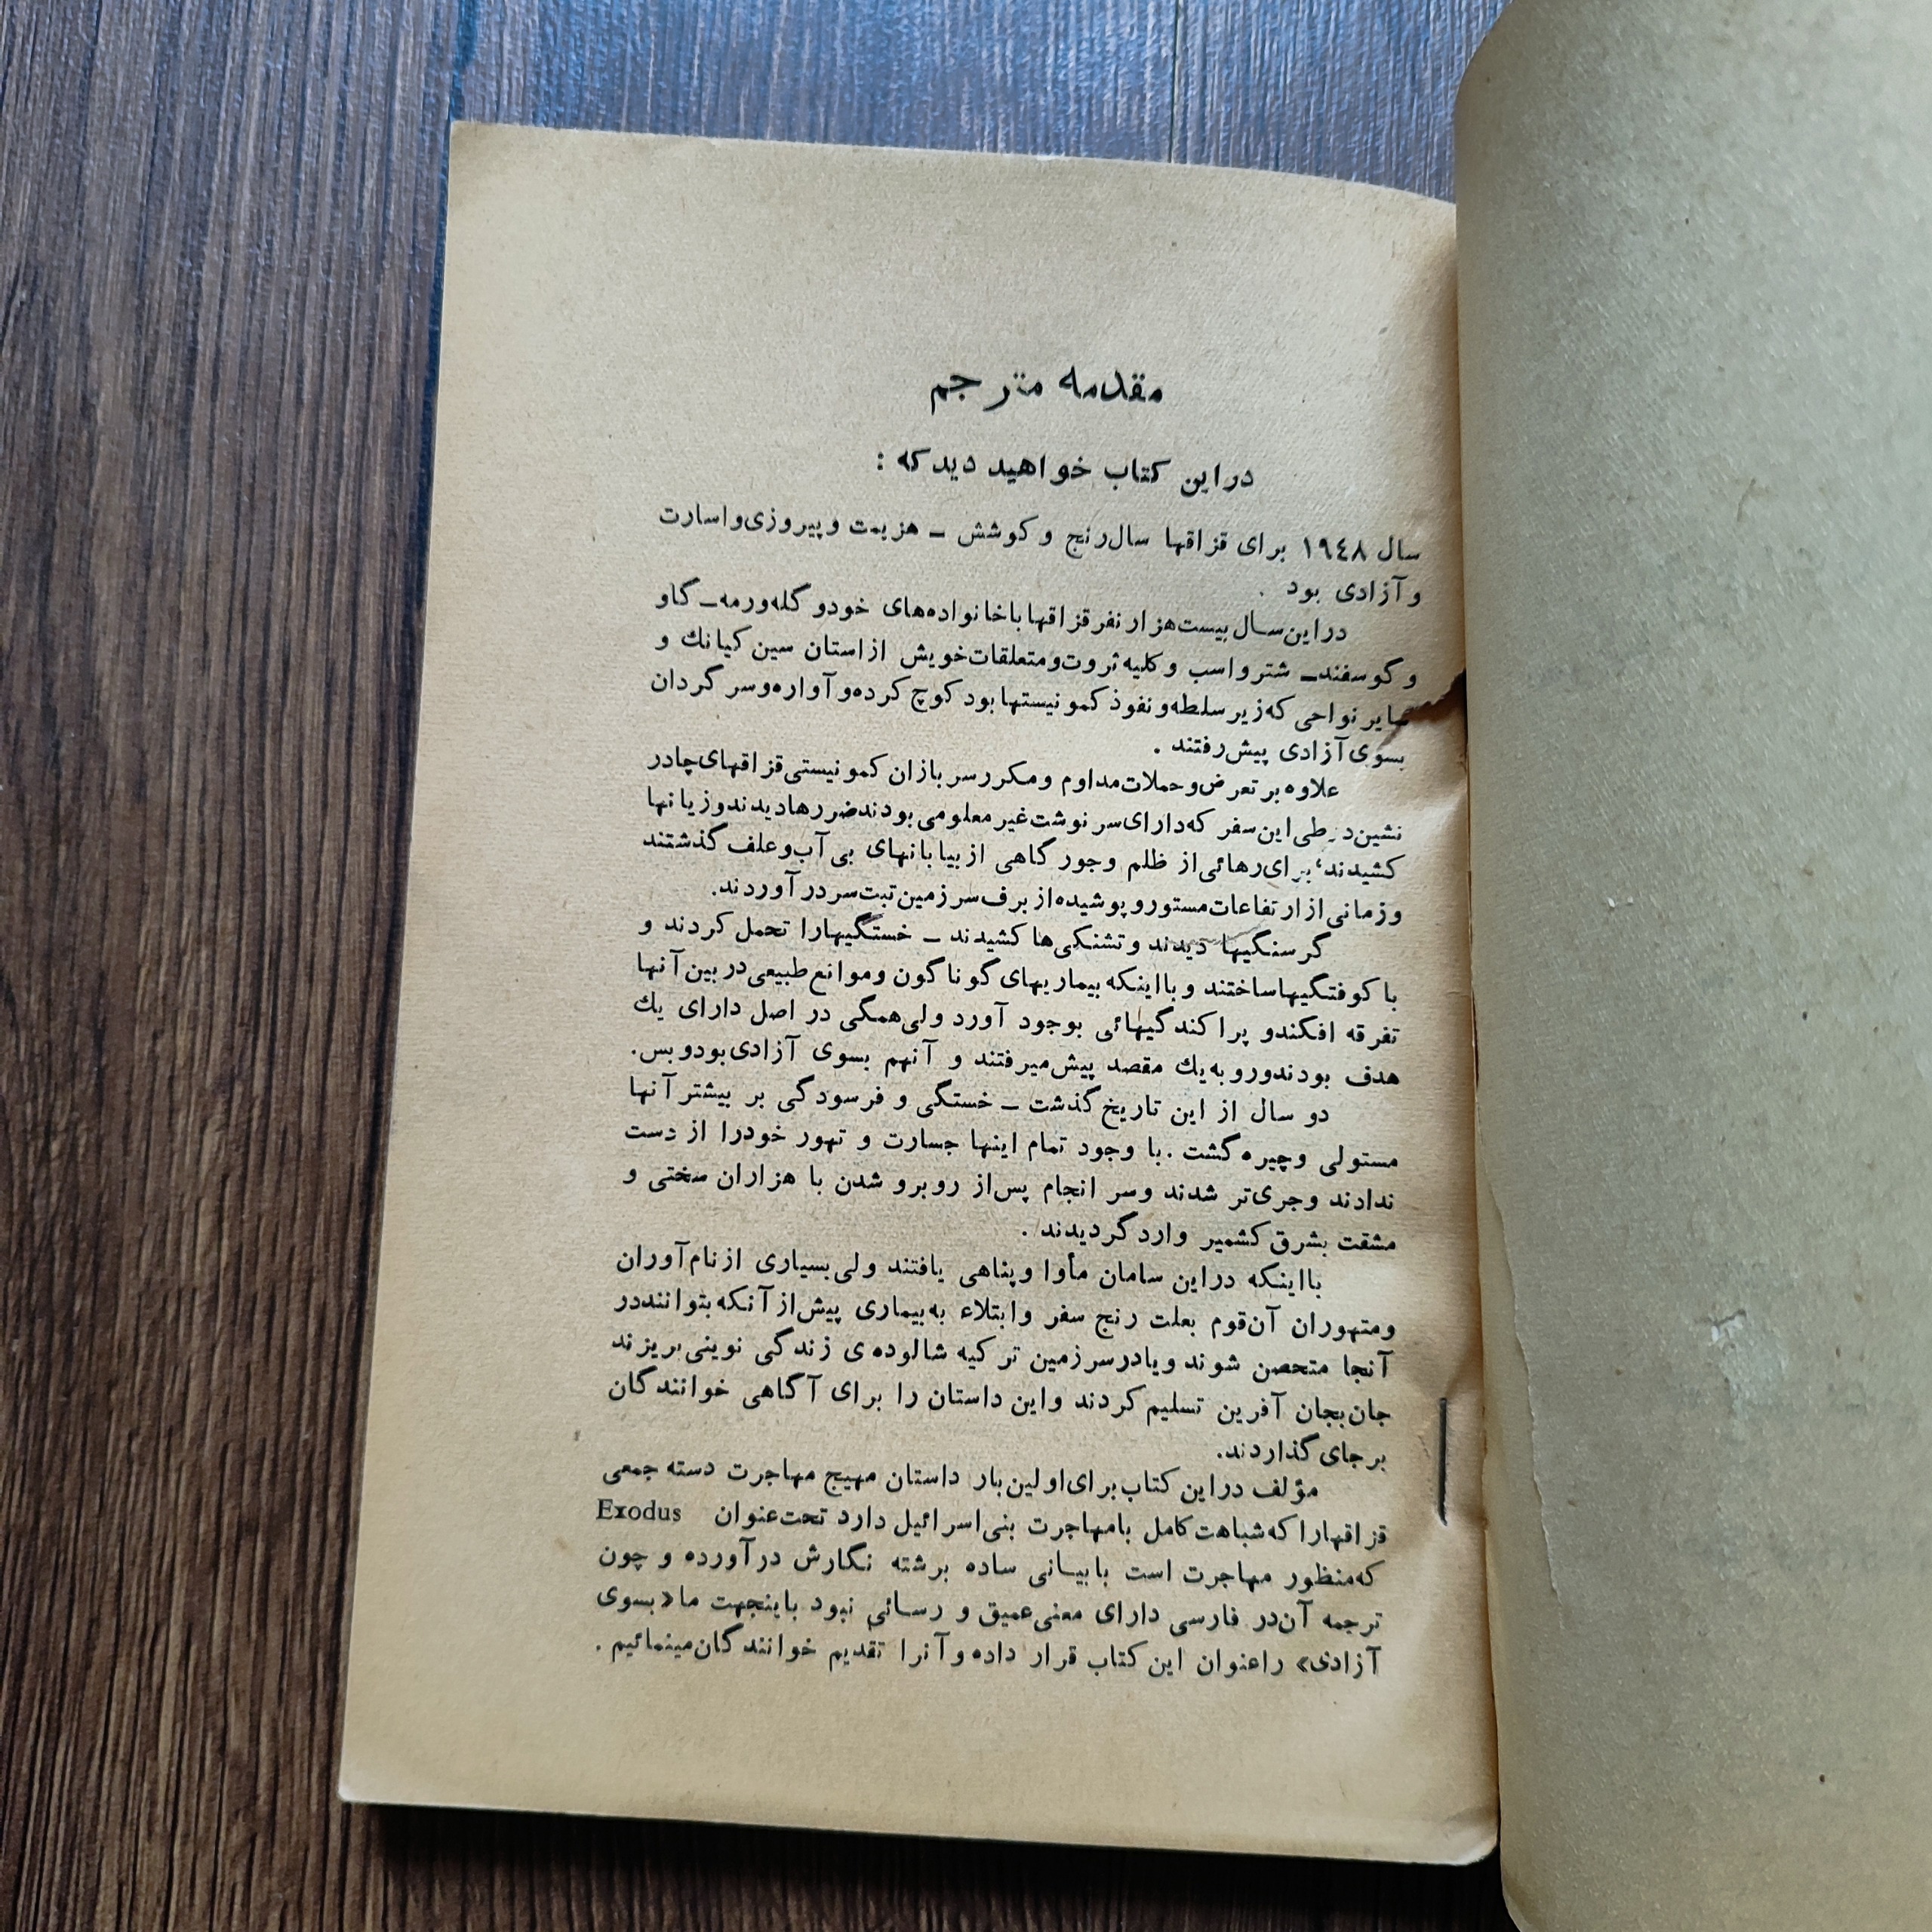 مقدمه مترجم
در این کتاب خواهید دید که :
سال ۱۹۴۸ برای قزاقها سال رنج و کوشش ـ هزیمت و پیروزی و اسارت
و آزادی بود .
در این سال بیست هزار نفر قزاقها با خانواده‌های خود و گله و رمه ـ گاو
و گوسفند ـ شتر و اسب و کلیه ثروت و متعلقات خویش از استان سین کیانك و
سایر نواحی که زیر سلطه و نفوذ کمونیستها بود کوچ کرده و آواره و سر گردان
بسوی آزادی پیش رفتند .
علاوه بر تعرض و حملات مداوم و مکرر سربازان کمونیستی قزاقهای چادر
نشین در طی این سفر که دارای سرنوشت غیر معلومی بودند ضررها دیدند و زیانها
کشیدند، برای رهائی از ظلم و جور گاهی از بیابانهای بی آب و علف گذشتند
و زمانی از ارتفاعات مستور و پوشیده از برف سرزمین تبت سر در آوردند.
گرسنگیها دیدند و تشنکی‌ها کشیدند ـ خستگیهارا تحمل کردند و
با کوفتگیها ساختند و با اینکه بیماریهای گوناگون و موانع طبیعی در بین آنها
تفرقه افکند و پراکندگیهائی بوجود آورد ولی همگی در اصل دارای یك
هدف بودند و رو به یك مقصد پیش میرفتند و آنهم بسوی آزادی بود و بس.
دو سال از این تاریخ گذشت ـ خستگی و فرسودگی بر بیشتر آنها
مستولی و چیره گشت . با وجود تمام اینها جسارت و تهور خودرا از دست
ندادند و جری‌تر شدند و سر انجام پس از روبرو شدن با هزاران سختی و
مشقت بشرق کشمیر وارد گردیدند .
با اینکه در این سامان مأوا و پناهی یافتند ولی بسیاری از نام آوران
و متهوران آن قوم بعلت رنج سفر و ابتلاء به بیماری پیش از آنکه بتوانند در
آنجا متحصن شوند و یا در سرزمین ترکیه شالوده‌ی زندگی نوینی بریزند
جان بجان آفرین تسلیم کردند و این داستان را برای آگاهی خوانندگان
بر جای گذاردند.
مؤلف در این کتاب برای اولین بار داستان مهیج مهاجرت دسته جمعی
قزاقهارا که شباهت کامل با مهاجرت بنی اسرائیل دارد تحت عنوان Exodus
که منظور مهاجرت است با بیانی ساده برشته نگارش در آورده و چون
ترجمه آن در فارسی دارای معنی عمیق و رسائی نبود باینجهت ما «بسوی
آزادی» را عنوان این کتاب قرار داده و آنرا تقدیم خوانندگان مینمائیم .